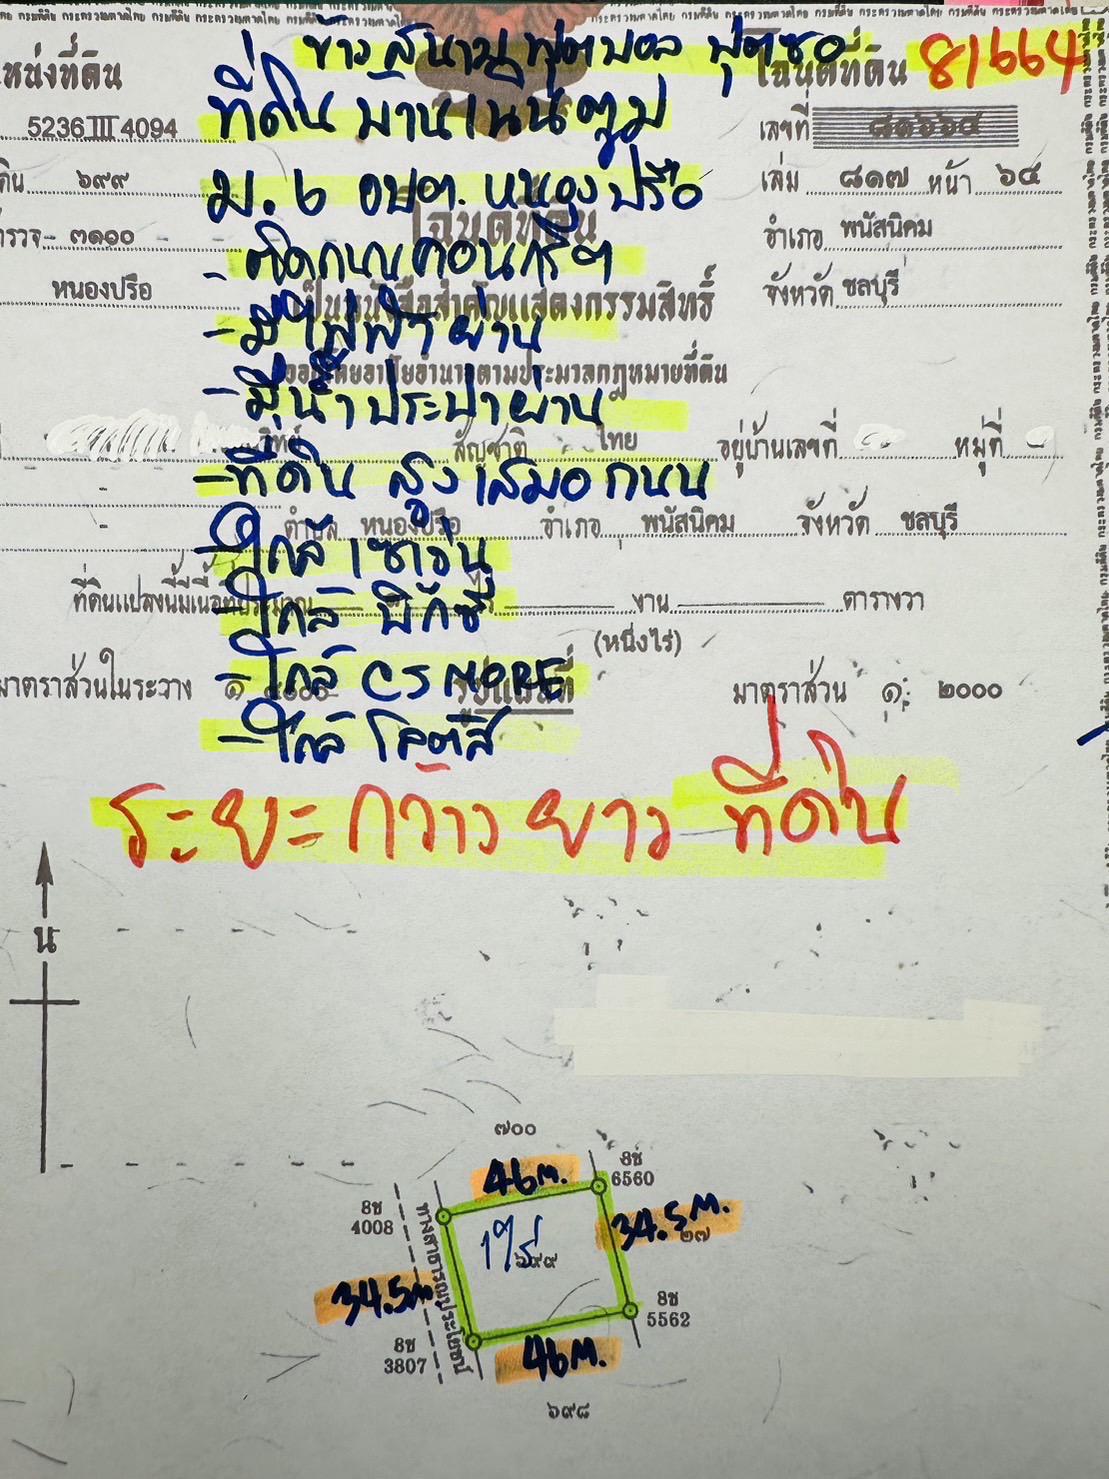 กรมที่ดิน กระทรวงมหาดไทย กรมที่ดิน กระทรวงมหาดไทย
ข้าง สนามฟุตบอล ฟุตซอ
โฉนดที่ดิน 81664
ที่ดิน บ้านเนินตูม
5236 III 4094
เลขที่ ๘๑๖๖๔
ม. ๖ อบต. หนองปรือ
๖๙๙
เล่ม ๘๑๗ หน้า ๖๔
โฉนดที่ดิน
๓๑๑๐
อำเภอ พนัสนิคม
- ติดถนนคอนกรีต
หนองปรือ
เป็นหนังสือสำคัญแสดงกรรมสิทธิ์
จังหวัด ชลบุรี
- มีไฟฟ้าผ่าน
ออกโดยอาศัยอำนาจตามประมวลกฎหมายที่ดิน
- มีน้ำประปาผ่าน
สัญชาติ ไทย อยู่บ้านเลขที่ หมู่ที่
- ที่ดิน สูงเสมอถนน
ตำบล หนองปรือ อำเภอ พนัสนิคม จังหวัด ชลบุรี
- ใกล้ เซเว่น
ที่ดินแปลงนี้มีเนื้อที่ประมาณ ไร่ งาน ตารางวา
- ใกล้ บิ๊กซี
(หนึ่งไร่)
- ใกล้ CJ MORE
มาตราส่วนในระวาง ๑ รูปแผนที่ มาตราส่วน ๑: ๒๐๐๐
- ใกล้ โลตัส
ระยะกว้าง ยาว ที่ดิน
น
๗๐๐
46 ม.
8ช 6560
8ช 4008
34.5 ม.
๒๗
1ไร่
๖๙๙
ทางสาธารณประโยชน์
34.5ม
8ช 5562
8ช 3807
46 ม.
๖๙๘